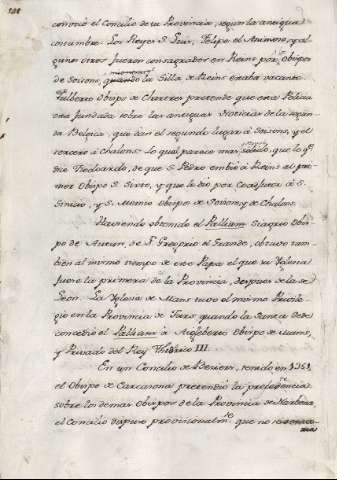 conoció el Concilio de su Provincia, segun la antigua
costumbre. Los Reyes S. Luis, Felipe el Animoso, y al-
gunos otros fueron consagrados en Reins por Obispos
de Soisons, mientras la Silla de Reins estaba vacante.
Fulberto Obispo de Chartres pretende que esta Policia
esta fundada sobre las antiguas Noticias de la segun-
da Belgica, que dan el segundo lugar à Soisons, y el
tercero à Chalons. Lo qual parece mas solido, que lo q.e
dice Flodoardo, de que S. Pedro embió à Reins al pri-
mer Obispo S. Sixto, y que le dio por Coadjutor à S.
Sinicio, y S. Memio Obispo de Soisons, y de Chalons.
Haviendo obtenido el Pallium Siagrio Obis-
po de Autun, de S. Gregorio el Grande, obtuvo tam-
bien al mismo tiempo de este Papa el que su Yglesia
fuere la primera de la Provincia, despues de la de
Leon. La Yglesia de Mans tuvo el mismo Privile-
gio en la Provincia de Turs quando la Santa Sede
concedió el Pallium à Aigleberto Obispo de Mans,
y Privado del Rey Thierrico III.
En un Concilio de Besiers, tenido en 1351,
el Obispo de Carcasona pretendió la presidencia
sobre los demas Obispos de la Provincia de Narbona
el Concilio dispuso provisionalm.te que no